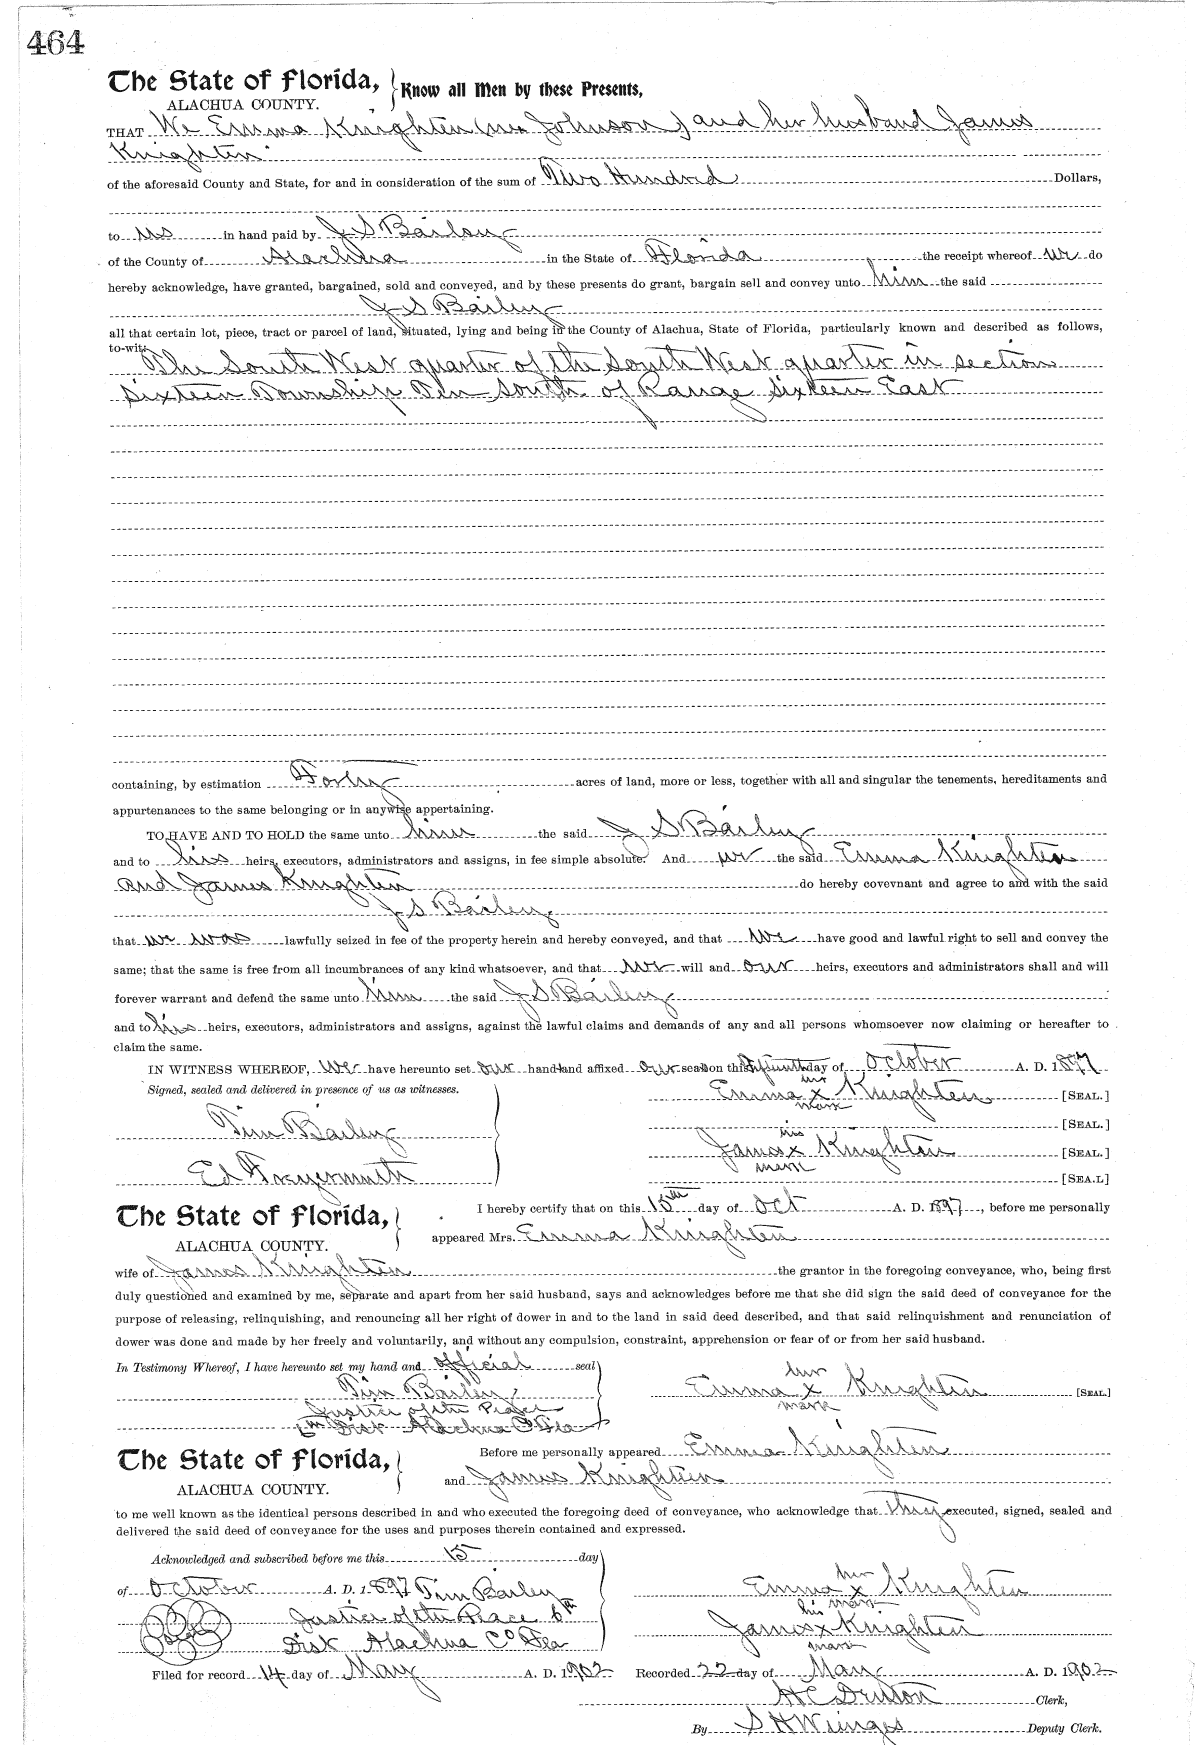 464
The State of Florida, Know all Men by these Presents,
ALACHUA COUNTY.
THAT We Emma Knighten (nee Johnson) and her husband James
Knighten
of the aforesaid County and State, for and in consideration of the sum of Two Hundred Dollars,
to us in hand paid by J S Bailey
of the County of Alachua in the State of Florida the receipt whereof we do
hereby acknowledge, have granted, bargained, sold and conveyed, and by these presents do grant, bargain sell and convey unto him the said
J S Bailey
all that certain lot, piece, tract or parcel of land, situated, lying and being in the County of Alachua, State of Florida, particularly known and described as follows,
to-wit: The South West quarter of the South West quarter in section
sixteen Township Ten South of Range sixteen East
containing, by estimation Forty acres of land, more or less, together with all and singular the tenements, hereditaments and
appurtenances to the same belonging or in anywise appertaining.
TO HAVE AND TO HOLD the same unto him the said J S Bailey
and to his heirs, executors, administrators and assigns, in fee simple absolute. And we the said Emma Knighten
and James Knighten do hereby covevnant and agree to and with the said
J S Bailey
that we was lawfully seized in fee of the property herein and hereby conveyed, and that we have good and lawful right to sell and convey the
same; that the same is free from all incumbrances of any kind whatsoever, and that we will and our heirs, executors and administrators shall and will
forever warrant and defend the same unto him the said J S Bailey
and to his heirs, executors, administrators and assigns, against the lawful claims and demands of any and all persons whomsoever now claiming or hereafter to
claim the same.
IN WITNESS WHEREOF, We have hereunto set our hand and affixed our seal on this fifteenth day of October A. D. 1897
Signed, sealed and delivered in presence of us as witnesses.
her
Emma x Knighten [SEAL.]
mark
[SEAL.]
Tim Bailey
his
James x Knighten [SEAL.]
mark
Ed [SEA.L]
The State of Florida, I hereby certify that on this 15th day of Oct A. D. 1897, before me personally
ALACHUA COUNTY. appeared Mrs. Emma Knighten
wife of James Knighten the grantor in the foregoing conveyance, who, being first
duly questioned and examined by me, separate and apart from her said husband, says and acknowledges before me that she did sign the said deed of conveyance for the
purpose of releasing, relinquishing, and renouncing all her right of dower in and to the land in said deed described, and that said relinquishment and renunciation of
dower was done and made by her freely and voluntarily, and without any compulsion, constraint, apprehension or fear of or from her said husband.
In Testimony Whereof, I have hereunto set my hand and official seal
Tim Bailey
her
Emma x Knighten [SEAL.]
mark
Justice of the Peace
6th Disk Alachua Co Fla
The State of Florida, Before me personally appeared Emma Knighten
ALACHUA COUNTY. and James Knighten
to me well known as the identical persons described in and who executed the foregoing deed of conveyance, who acknowledge that they executed, signed, sealed and
delivered the said deed of conveyance for the uses and purposes therein contained and expressed.
Acknowledged and subscribed before me this 15 day
of October A. D. 1897 Tim Bailey
Justice of the Peace 6th
Disk Alachua Co Fla
her
Emma x Knighten
mark
his
James x Knighten
mark
Filed for record 14 day of May A. D. 1902 Recorded 22 day of May A. D. 1902
H C Denton Clerk,
By S H Wienges Deputy Clerk.